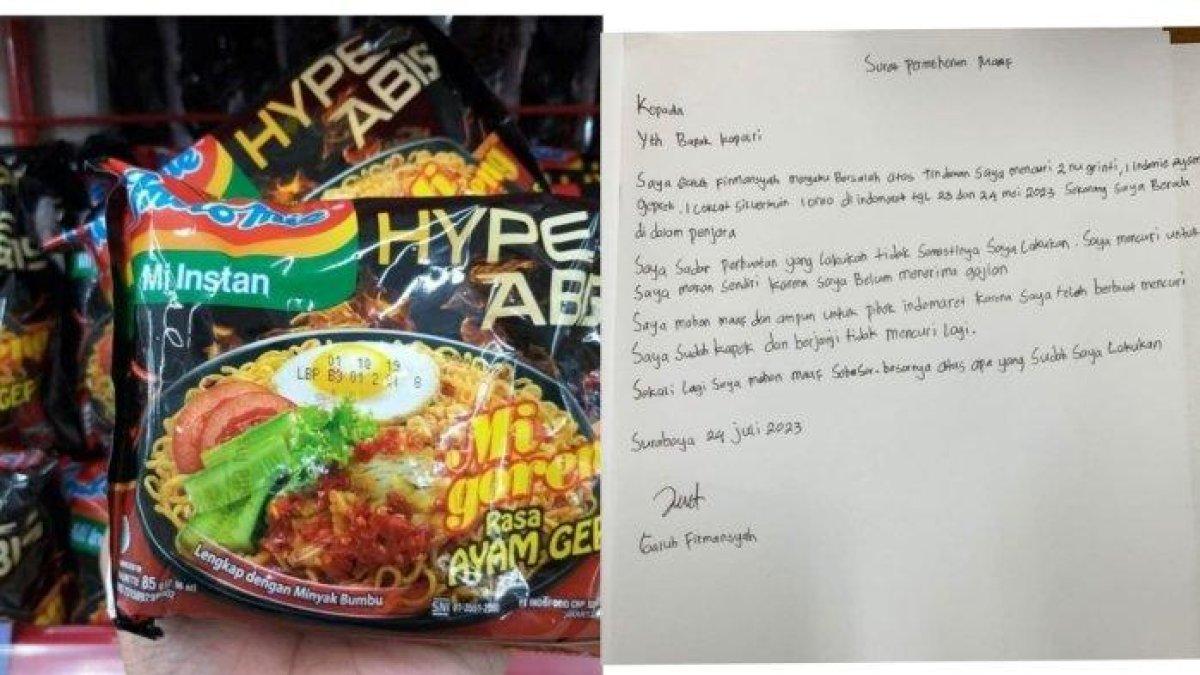 HYPE
ABIS
Indomie
Mi Instan
HYPE
ABIS
01 10 19
Mi
goreng
Rasa
AYAM GEP
Lengkap dengan Minyak Bumbu
SNI
Surat Permohonan Maaf
Kepada
Yth Bapak Kapolri
Saya Galuh Firmansyah mengaku Bersalah atas tindakan Saya mencuri 2 nu grinti, 1 Indomie ayam
geprek, 1 Coklat silverkuin 1 oreo di indomaret tgl 23 dan 24 mei 2023 Sekarang Saya Berada
di dalam penjara
Saya Sadar perbuatan yang Lakukan tidak Semestinya Saya Lakukan. Saya mencuri untuk
Saya makan sendiri karena Saya Belum menerima gajian
Saya mohon maaf dan ampun untuk pihak indomaret karena Saya telah berbuat mencuri
Saya Sudah kapok dan berjanji tidak mencuri Lagi.
Sekali Lagi Saya mohon maaf Sebesar-besarnya atas apa yang Sudah Saya Lakukan
Surabaya 24 juli 2023
Galuh Firmansyah